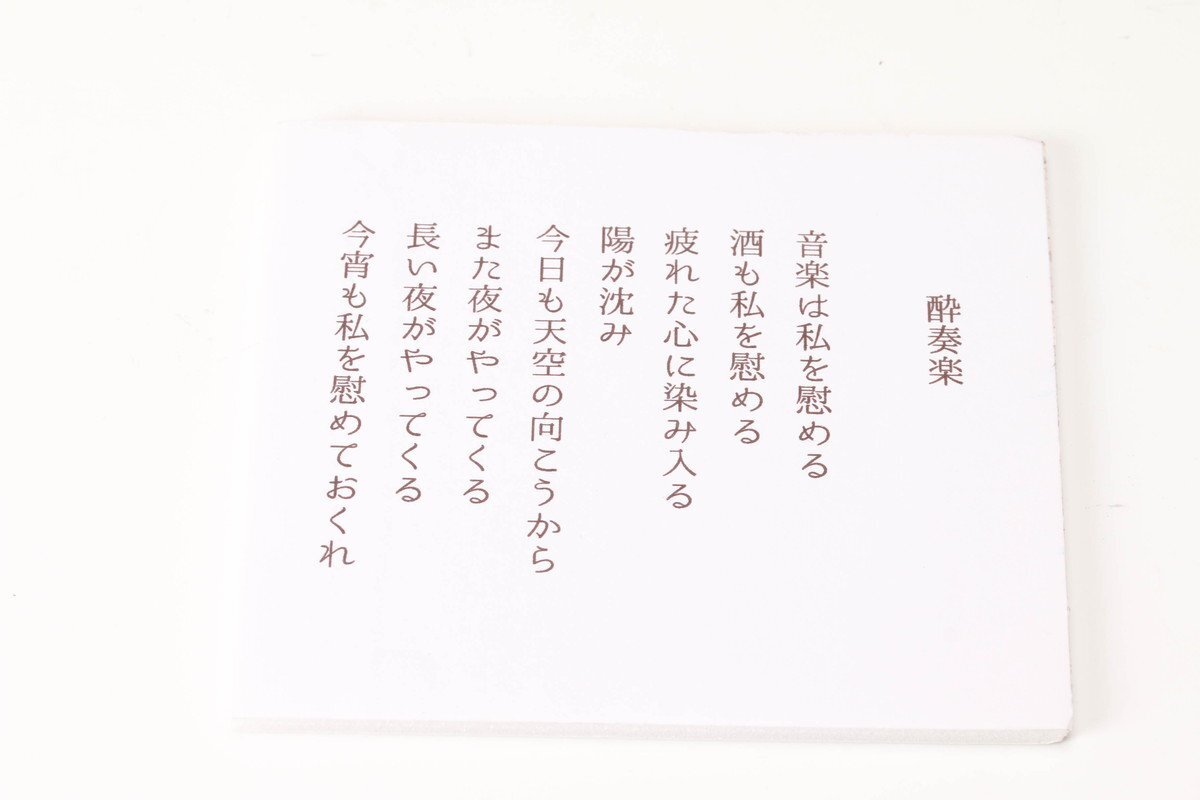 酔奏楽
音楽は私を慰める
酒も私を慰める
疲れた心に染み入る
陽が沈み
今日も天空の向こうから
また夜がやってくる
長い夜がやってくる
今宵も私を慰めておくれ